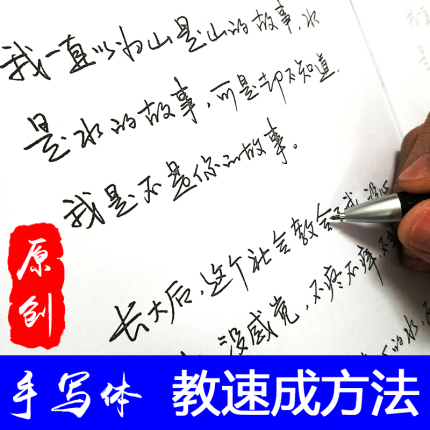 我一直以为山是山的故事,水
是水的故事,可是却不知道.
我是不是你的故事。
长大后,这个社会教会
没感觉,不疼不痒,不
原创
手写体 教速成方法